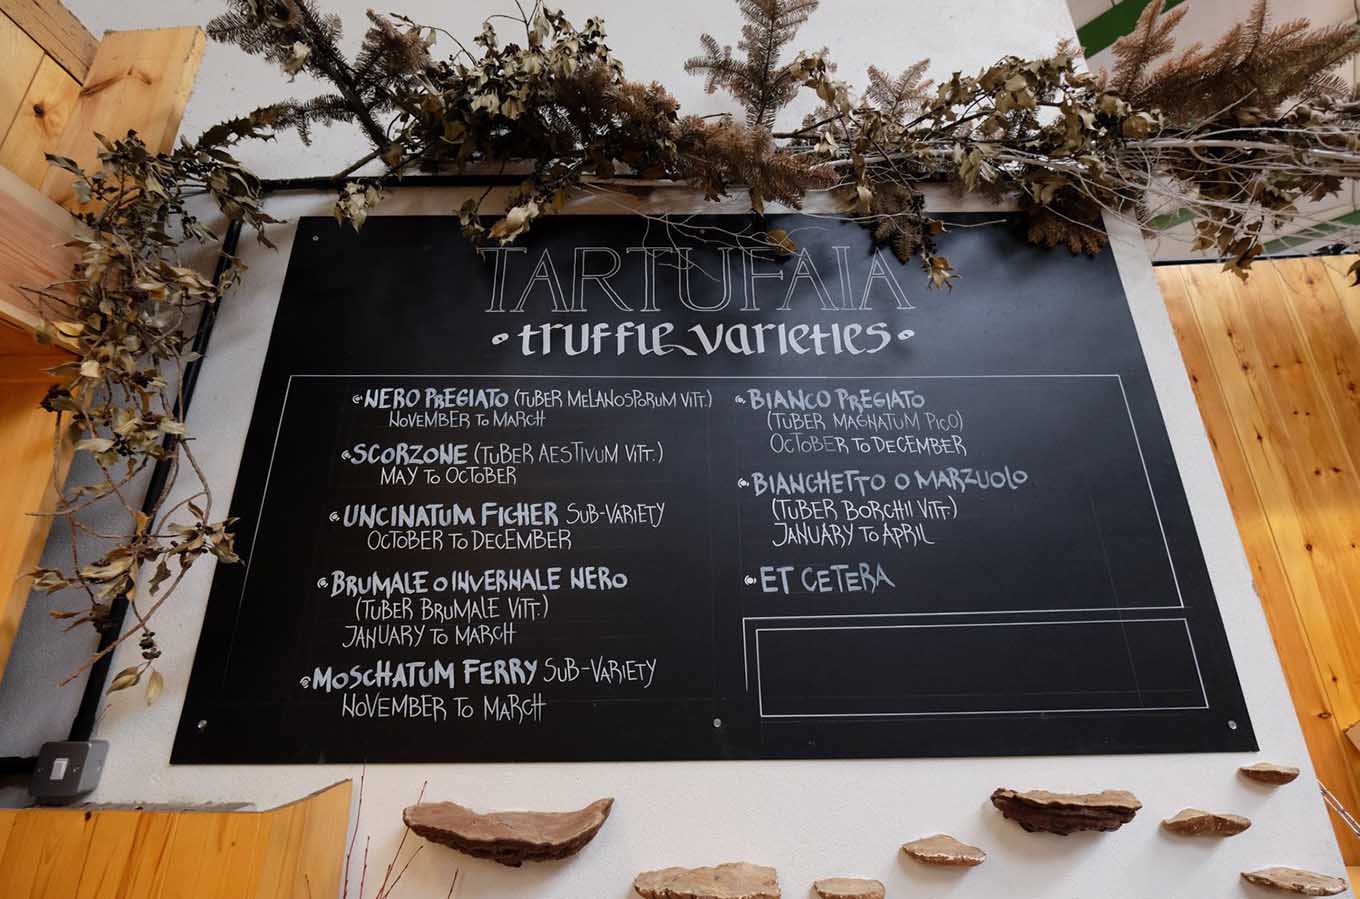 TARTUFAIA
• truffle varieties •
NERO PREGIATO (TUBER MELANOSPORUM VITT.)
NOVEMBER TO MARCH
SCORZONE (TUBER AESTIVUM VITT.)
MAY TO OCTOBER
UNCINATUM FICHER SUB-VARIETY
OCTOBER TO DECEMBER
BRUMALE O INVERNALE NERO
(TUBER BRUMALE VITT.)
JANUARY TO MARCH
MOSCHATUM FERRY SUB-VARIETY
NOVEMBER TO MARCH
BIANCO PREGIATO
(TUBER MAGNATUM PICO)
OCTOBER TO DECEMBER
BIANCHETTO O MARZUOLO
(TUBER BORCHII VITT)
JANUARY TO APRIL
ET CETERA